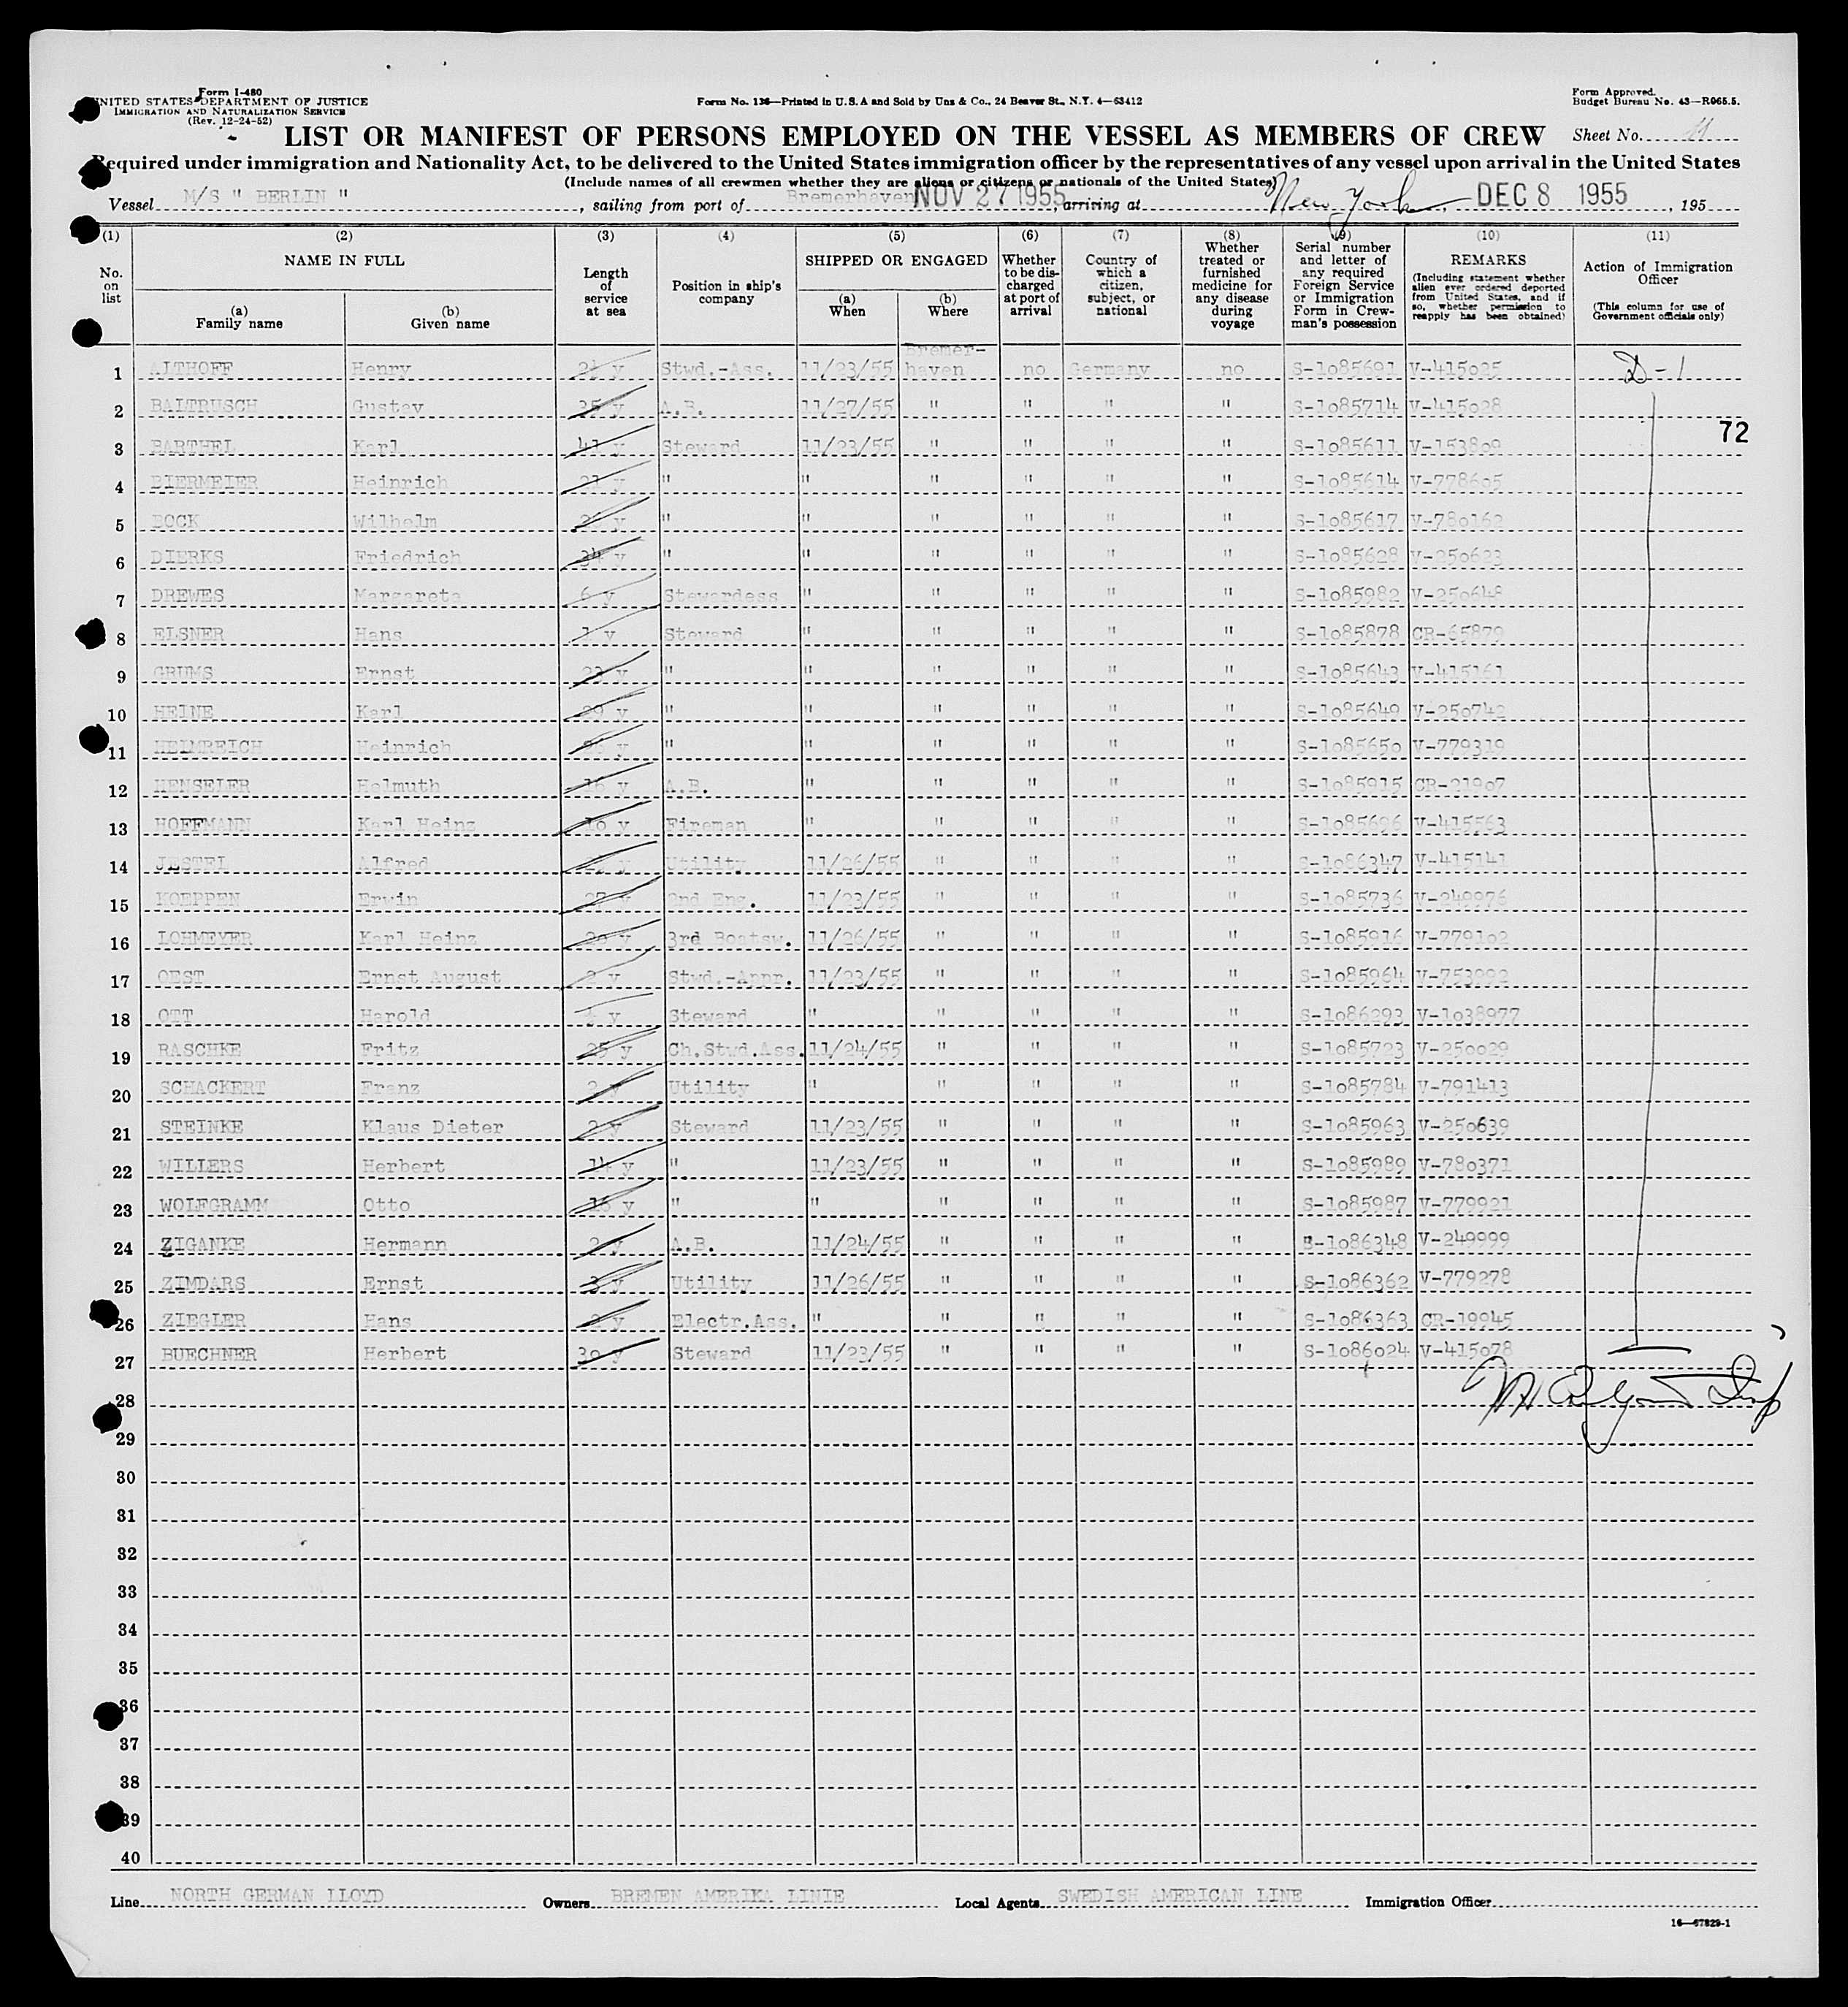 Form I-480
UNITED STATES DEPARTMENT OF JUSTICE
IMMIGRATION AND NATURALIZATION SERVICE
(Rev. 12-24-52)
Form No. 136—Printed in U.S.A and Sold by Unz & Co., 24 Beaver St., N.Y. 4—63412
Form Approved.
Budget Bureau No. 43—R065.5.
LIST OR MANIFEST OF PERSONS EMPLOYED ON THE VESSEL AS MEMBERS OF CREW Sheet No. 11
Required under immigration and Nationality Act, to be delivered to the United States immigration officer by the representatives of any vessel upon arrival in the United States
(Include names of all crewmen whether they are aliens or citizens or nationals of the United States)
Vessel M/S " BERLIN " , sailing from port of Bremerhaven NOV 27 1955, arriving at New York, DEC 8 1955, 195
(1) (2) (3) (4) (5) (6) (7) (8) (9) (10) (11)
No. on list
NAME IN FULL
(a) Family name
(b) Given name
Length of service at sea
Position in ship's company
SHIPPED OR ENGAGED
(a) When
(b) Where
Whether to be discharged at port of arrival
Country of which a citizen, subject, or national
Whether treated or furnished medicine for any disease during voyage
Serial number and letter of any required Foreign Service or Immigration Form in Crewman's possession
REMARKS
(Including statement whether alien ever ordered deported from United States, and if so, whether permission to reapply has been obtained)
Action of Immigration Officer
(This column for use of Government officials only)
1 ALTHOFF Henry y Stwd.-Ass. 11/23/55 Bremer-haven no Germany no S-1085691 V-415025 D-1
2 BALTRUSCH Gustav y A.B. 11/27/55 " " " " S-1085714 V-415028
72
3 BARTHEL Karl 41 y Steward 11/23/55 " " " " S-1085611 V-153809
4 BIERMEIER Heinrich y " " " " " " S-1085614 V-778605
5 BOCK Wilhelm y " " " " " " S-1085617 V-780162
6 DIERKS Friedrich 34 y " " " " " " S-1085628 V-250623
7 DREWES Margareta 6 y Stewardess " " " " " S-1085982 V-250648
8 ELSNER Hans 1 y Steward " " " " " S-1085878 CR-65879
9 GRUMS Ernst 23 y " " " " " " S-1085643 V-415161
10 HEINE Karl 29 y " " " " " " S-1085649 V-250742
11 HEIMREICH Heinrich y " " " " " " S-1085650 V-779319
12 HENSELER Helmuth 16 y A.B. " " " " " S-1085915 CR-21907
13 HOFFMANN Karl Heinz 10 y Fireman " " " " " S-1085696 V-415563
14 JESTEL Alfred y Utility 11/26/55 " " " " S-1086347 V-415141
15 KOEPPEN Erwin 27 y 2nd Eng. 11/23/55 " " " " S-1085736 V-249976
16 LOHMEYER Karl Heinz y 3rd Boatsw. 11/26/55 " " " " S-1085916 V-779102
17 OEST Ernst August 2 y Stwd.-Appr. 11/23/55 " " " " S-1085964 V-753992
18 OTT Harold y Steward " " " " " S-1086293 V-1038977
19 RASCHKE Fritz 25 y Ch.Stwd.Ass. 11/24/55 " " " " S-1085723 V-250029
20 SCHACKERT Franz 2 y Utility " " " " " S-1085784 V-791413
21 STEINKE Klaus Dieter 2 y Steward 11/23/55 " " " " S-1085963 V-250639
22 WILLERS Herbert 14 y " 11/23/55 " " " " S-1085989 V-780371
23 WOLFGRAMM Otto 16 y " " " " " " S-1085987 V-779921
24 ZIGANKE Hermann 2 y A.B. 11/24/55 " " " " S-1086348 V-249999
25 ZIMDARS Ernst 3 y Utility 11/26/55 " " " " S-1086362 V-779278
26 ZIEGLER Hans 2 y Electr.Ass. " " " " " S-1086363 CR-19945
27 BUECHNER Herbert 30 y Steward 11/23/55 " " " " S-1086024 V-415078
28
29
30
31
32
33
34
35
36
37
38
39
40
Line NORTH GERMAN LLOYD Owners BREMEN AMERIKA LINIE Local Agents SWEDISH AMERICAN LINE Immigration Officer
16—67829-1